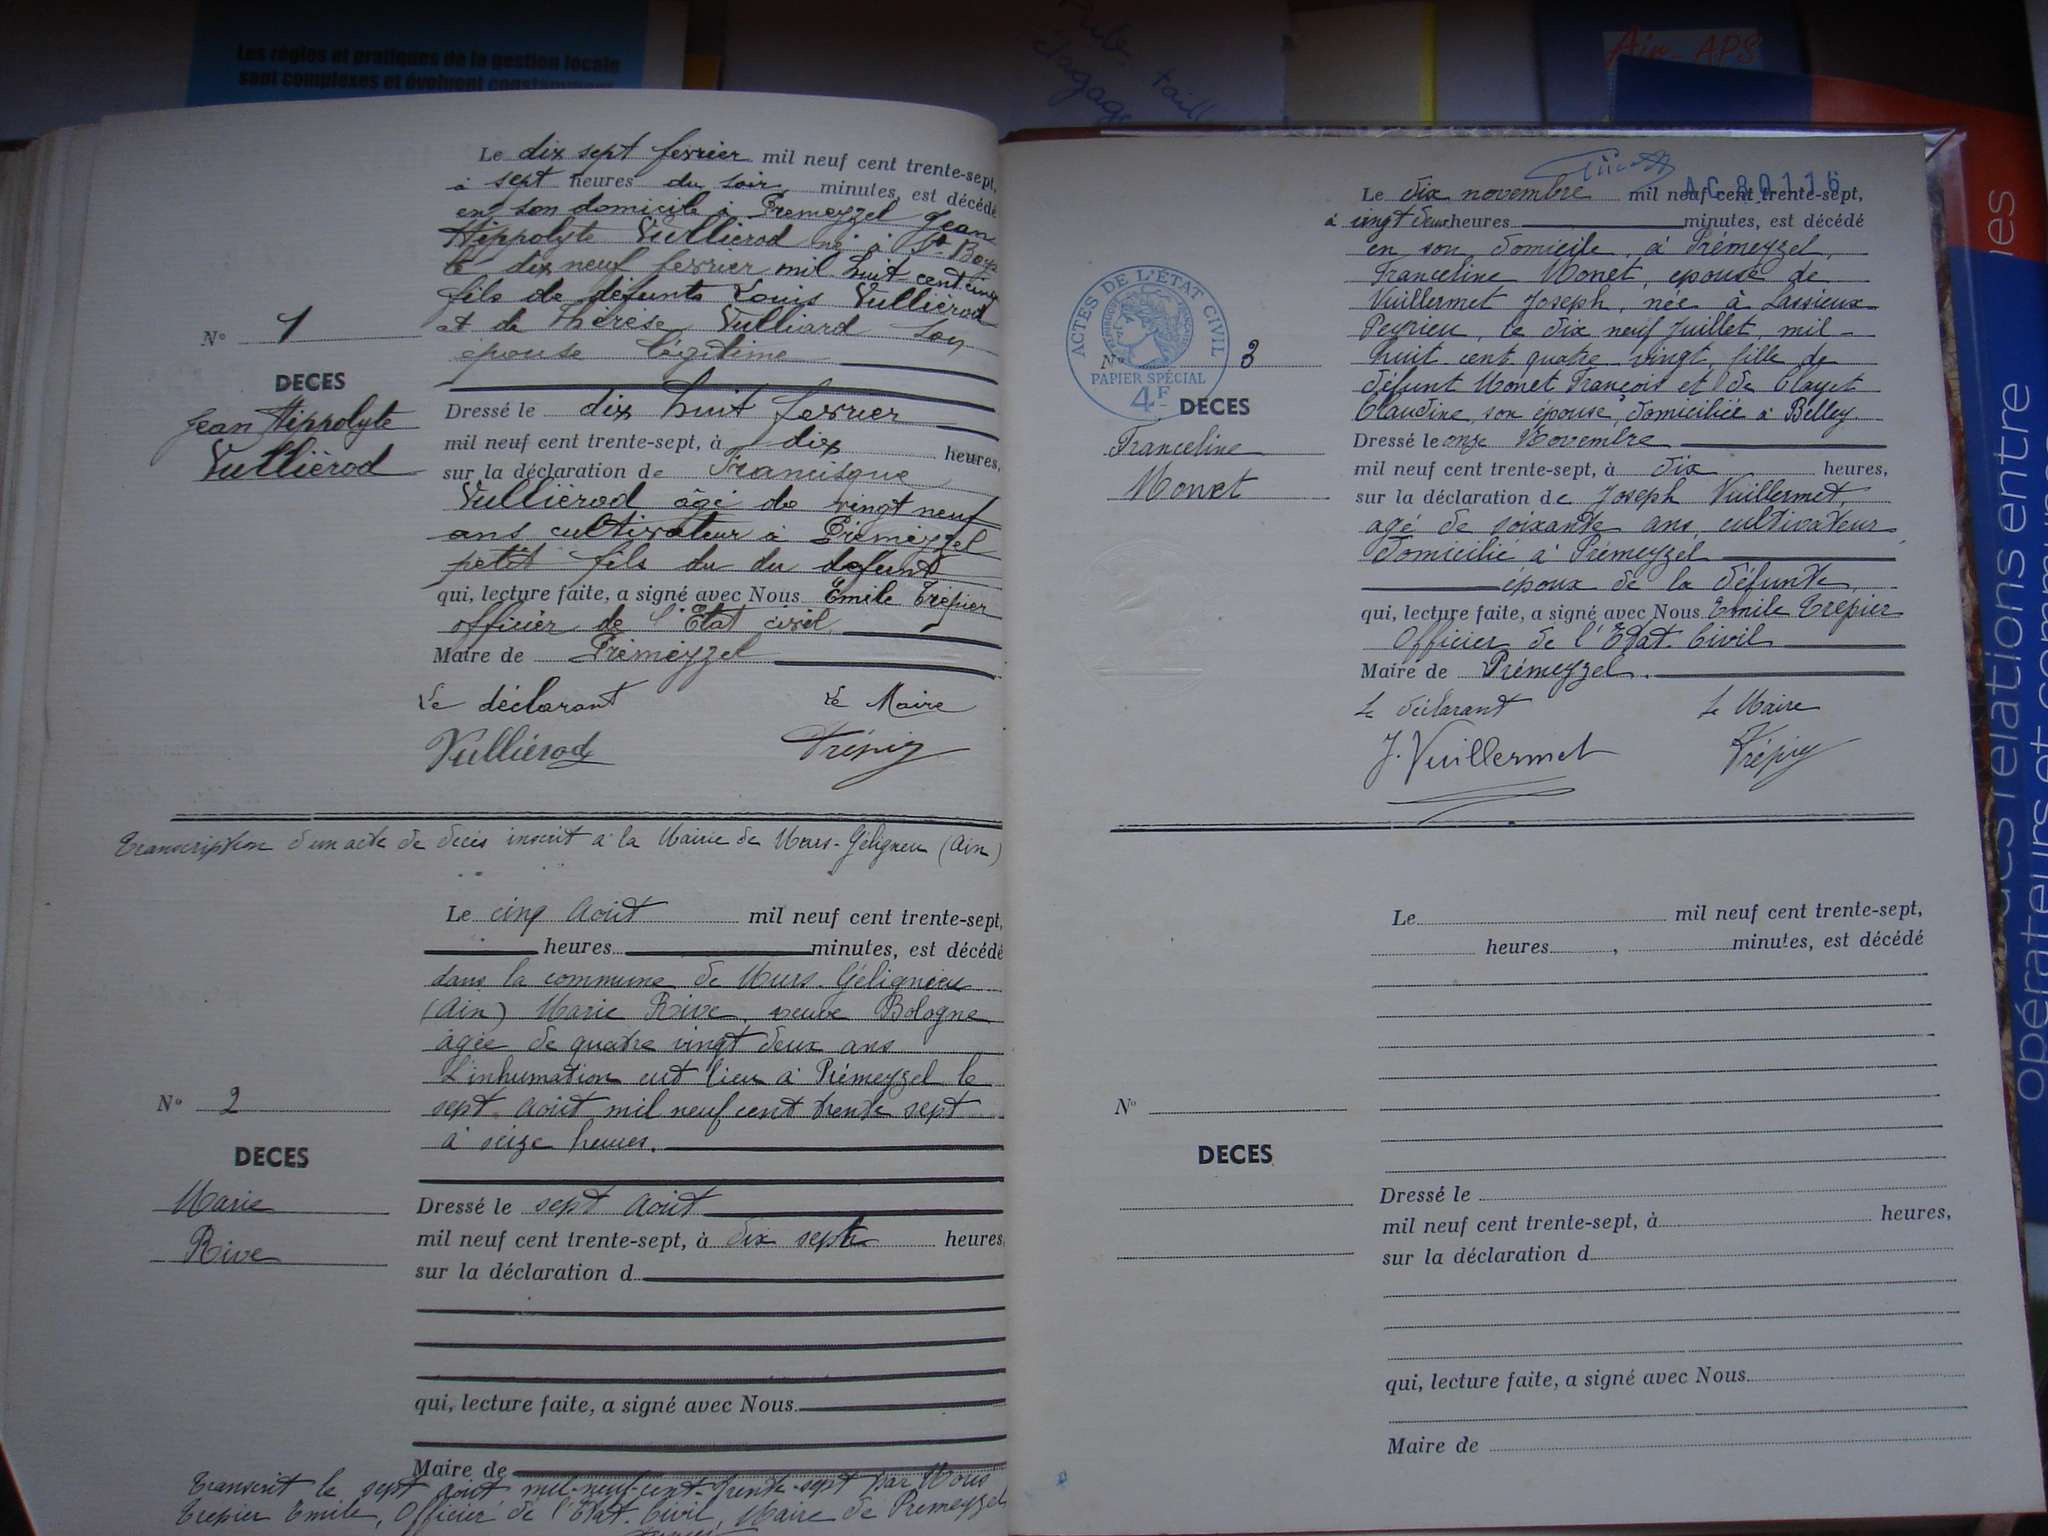 Les règles et pratiques de la gestion locale
sont complexes et évoluent constamment
Air APS
Le dix sept fevrier mil neuf cent trente-sept,
à sept heures du soir minutes, est décédé
en son domicile à Premeyzel Jean
Hippolyte Vulliérod né à St Bois
le dix neuf fevrier mil huit cent cinq
fils de défunts Louis Vulliérod
et de Thérèse Vulliard son
épouse légitime
N° 1
DECES
Jean Hippolyte
Vulliérod
Dressé le dix huit fevrier
mil neuf cent trente-sept, à dix heures,
sur la déclaration de Francisque
Vulliérod âgé de vingt neuf
ans cultivateur à Prémeyzel
petit fils du du defunt
qui, lecture faite, a signé avec Nous Emile Trépier
officier de l'Etat civil
Maire de Prémeyzel
Le déclarant Le Maire
Vulliérod Trépier
Transcription d'un acte de décès inscrit à la Mairie de Murs-Géligneu (Ain)
Le cinq Août mil neuf cent trente-sept,
heures minutes, est décédé
dans la commune de Murs-Géligneu
(Ain) Marie Rive, veuve Bologne
âgée de quatre vingt deux ans
L'inhumation eut lieu à Prémeyzel le
sept août mil neuf cent trente sept
à seize heures.
N° 2
DECES
Marie
Rive
Dressé le sept Août
mil neuf cent trente-sept, à dix sept heures,
sur la déclaration d
qui, lecture faite, a signé avec Nous
Maire de
Transcrit le sept août mil-neuf-cent-trente-sept par Nous
Trepier Emile, Officier de l'Etat-Civil, Maire de Premeyzel
AC 80116
Le dix novembre mil neuf cent trente-sept,
à vingt deux heures minutes, est décédé
en son domicile, à Prémeyzel,
Franceline Monet, épouse de
Vuillermet Joseph, née à Lassieux
Peyrieu, le dix neuf Juillet, mil-
huit cent quatre vingt, fille de
défunt Monet François et de Clayet
Claudine, son épouse, domiciliée à Belley.
ACTES DE L'ÉTAT CIVIL
PAPIER SPÉCIAL
4F
N° 3
DECES
Franceline
Monet
Dressé le onze Novembre
mil neuf cent trente-sept, à dix heures,
sur la déclaration de Joseph Vuillermet,
agé de soixante ans, cultivateur
domicilié à Prémeyzel
époux de la défunte,
qui, lecture faite, a signé avec Nous Emile Trepier
Officier de l'Etat-Civil
Maire de Prémeyzel.
Le déclarant Le Maire
J. Vuillermet Trépier
Le mil neuf cent trente-sept,
heures, minutes, est décédé
N°
DECES
Dressé le
mil neuf cent trente-sept, à heures,
sur la déclaration d
qui, lecture faite, a signé avec Nous
Maire de
des relations entre
opérateurs et communes